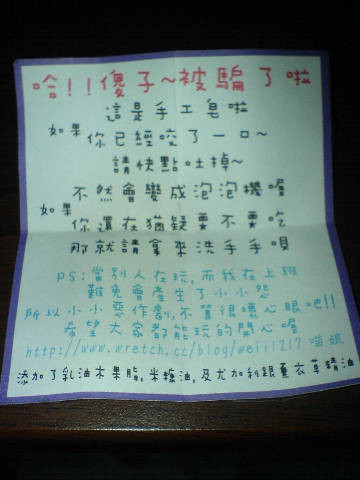 哈!!傻子~被騙了啦
這是手工皂啦
如果你已經咬了一口~
請快點吐掉~
不然會變成泡泡機喔
如果你還在猶疑要不要吃
那就請拿來洗手手唄
PS:當別人在玩,而我在上班
難免會產生了小小怨
所以小小惡作劇,不算很壞心眼吧!!
希望大家都能玩的開心喔
http://www.wretch.cc/blog/weiii217 喵娘
添加了乳油木果脂,米糠油,及尤加利跟薰衣草精油